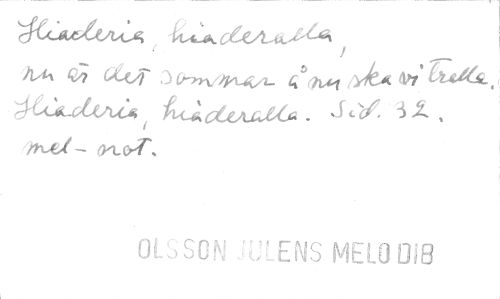 Hiaderia, hiaderalla,
nu är det sommar å nu ska vi tralla.
Hiaderia, hiaderalla. Sid. 32.
mel-not.
OLSSON JULENS MELODIB